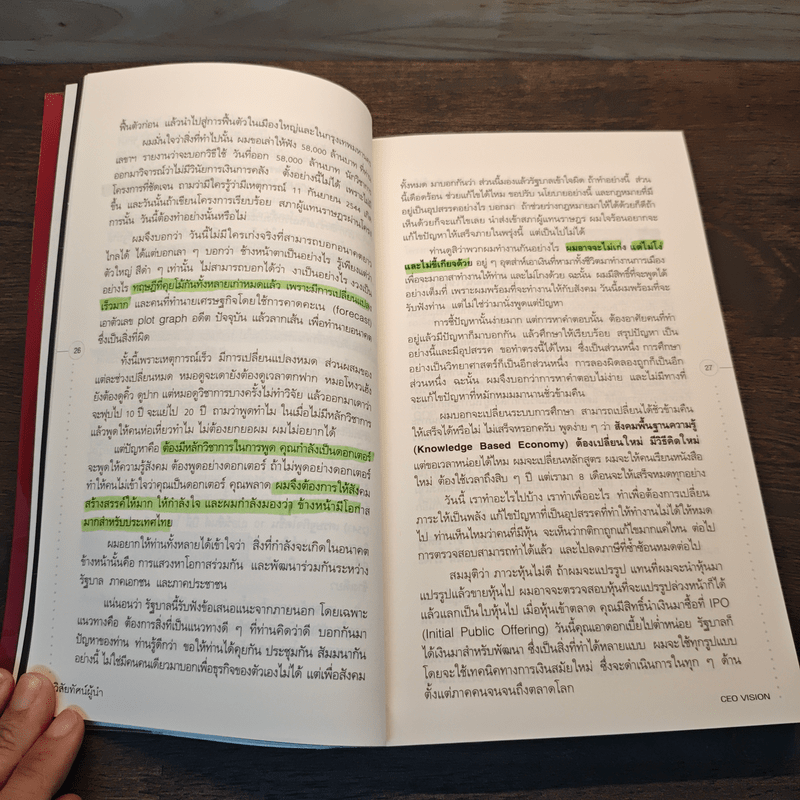 ฟื้นตัวก่อน แล้วนำไปสู่การฟื้นตัวในเมืองใหญ่และในกรุงเทพมหานคร
ผมมั่นใจว่าสิ่งที่ทำไปนั้น ผมขอเล่าให้ฟัง 58,000 ล้านบาท
เลขาฯ รายงานว่าจะบอกวิธีใช้ วันที่ออก 58,000 ล้านบาท
ออกมาวิจารณ์ว่าไม่มีวินัยการเงินการคลัง ตั้งอย่างนี้ไม่ได้ เพราะไม่มี
โครงการที่ชัดเจน ถามว่ามีใครรู้ว่ามีเหตุการณ์ 11 กันยายน 2544
ขึ้น และวันนั้นถ้าเขียนโครงการเรียบร้อย สภาผู้แทนราษฎรผ่านโครง
การนั้น วันนี้ต้องทำอย่างนั้นหรือไม่
ผมจึงบอกว่า วันนี้ไม่มีใครเก่งจริงที่สามารถบอกอนาคตอย่าง
ไกลได้ ได้แต่บอกเลา ๆ บอกว่า ช้างหน้าตาเป็นอย่างไร รู้เพียงแต่ว่า
ตัวใหญ่ สีดำ ๆ เท่านั้น ไม่สามารถบอกได้ว่า งาเป็นอย่างไร งวงเป็น
อย่างไร ทฤษฎีที่คุยไม่กันทั้งหลายเก่าหมดแล้ว เพราะมีการเปลี่ยนแปลง
เร็วมาก และคนที่ทำนายเศรษฐกิจโดยใช้การคาดคะเน (forecast)
เอาตัวเลข plot graph อดีต ปัจจุบัน แล้วลากเส้น เพื่อทำนายอนาคต
ซึ่งเป็นสิ่งที่ผิด
ทั้งนี้เพราะเหตุการณ์เร็ว มีการเปลี่ยนแปลงหมด ส่วนผสมของ
แต่ละช่วงเปลี่ยนหมด หมอดูจะเดายังต้องดูเวลาตกฟาก หมอโหงวเฮ้ง
ยังต้องดูคิ้ว ดูปาก แต่หมอดูวิชาการบางครั้งไม่ทำวิจัย แล้วออกมาเดาว่า
จะฟุบไป 10 ปี จะแย่ไป 20 ปี ถามว่าพูดทำไม ในเมื่อไม่มีหลักวิชาการ
แล้วพูดให้คนห่อเหี่ยวทำไม ไม่ต้องยกยอผม ผมไม่อยากได้
แต่ปัญหาคือ ต้องมีหลักวิชาการในการพูด คุณกำลังเป็นดอกเตอร์
จะพูดให้ความรู้สังคม ต้องพูดอย่างดอกเตอร์ ถ้าไม่พูดอย่างดอกเตอร์
ทำให้คนไม่เข้าใจว่าคุณเป็นดอกเตอร์ คุณพลาด ผมจึงต้องการให้สังคม
สร้างสรรค์ให้มาก ให้กำลังใจ และผมกำลังมองว่า ข้างหน้ามีโอกาส
มากสำหรับประเทศไทย
ผมอยากให้ท่านทั้งหลายได้เข้าใจว่า สิ่งที่กำลังจะเกิดในอนาคต
ข้างหน้านั้นคือ การแสวงหาโอกาสร่วมกัน และพัฒนาร่วมกันระหว่าง
รัฐบาล ภาคเอกชน และภาคประชาชน
แน่นอนว่า รัฐบาลนี้รับฟังข้อเสนอแนะจากภายนอก โดยเฉพาะ
แนวทางคือ ต้องการสิ่งที่เป็นแนวทางดี ๆ ที่ท่านคิดว่าดี บอกกันมา
ปัญหาของท่าน ท่านรู้ดีกว่า ขอให้ท่านได้คุยกัน ประชุมกัน สัมมนากัน
อย่างนี้ ไม่ใช่มีคนคนเดียวมาบอกเพื่อธุรกิจของตัวเองไม่ได้ แต่เพื่อสังคม
26
วิสัยทัศน์ผู้นำ
ทั้งหมด มาบอกกันว่า ส่วนนี้มองแล้วรัฐบาลเข้าใจผิด ถ้าทำอย่างนี้ ส่วน
นี้เดือดร้อน ช่วยแก้ไขได้ไหม ขอปรับ นโยบายอย่างนี้ และกฎหมายที่มี
อยู่เป็นอุปสรรคอย่างไร บอกมา ถ้าช่วยร่างกฎหมายมาให้ได้ด้วยก็ดีถ้า
เห็นด้วยก็จะแก้ไขเลย นำส่งเข้าสภาผู้แทนราษฎร ผมใจร้อนอยากจะ
แก้ไขปัญหาให้เสร็จภายในพรุ่งนี้ แต่เป็นไปไม่ได้
ท่านดูสิว่าพวกผมทำงานกันอย่างไร ผมอาจจะไม่เก่ง แต่ไม่โง่
และไม่ขี้เกียจด้วย อยู่ ๆ อุตส่าห์เอาเงินที่หามาทั้งชีวิตมาทำงานการเมือง
เพื่อจะมาอาสาทำงานให้ท่าน และไม่โกงด้วย ฉะนั้น ผมมีสิทธิ์ที่จะพูดได้
อย่างเต็มที่ เพราะผมพร้อมที่จะทำงานให้กับสังคม วันนี้ผมพร้อมที่จะ
รับฟังท่าน แต่ไม่ใช่ว่ามานั่งพูดแต่ปัญหา
การชี้ปัญหานั้นง่ายมาก แต่การหาคำตอบนั้น ต้องอาศัยคนที่ทำ
อยู่แล้วมีปัญหาก็มาบอกกัน แล้วศึกษาให้เรียบร้อย สรุปปัญหา เป็น
อย่างนี้และมีอุปสรรค ขอทำตรงนี้ได้ไหม ซึ่งเป็นส่วนหนึ่ง การศึกษา
อย่างเป็นวิทยาศาสตร์ก็เป็นอีกส่วนหนึ่ง การลองผิดลองถูกก็เป็นอีก
ส่วนหนึ่ง ฉะนั้น ผมจึงบอกว่าการหาคำตอบไม่ง่าย และไม่มีทางที่
จะแก้ไขปัญหาที่หมักหมมมานานชั่วข้ามคืน
ผมบอกจะเปลี่ยนระบบการศึกษา สามารถเปลี่ยนได้ชั่วข้ามคืน
ให้เสร็จได้หรือไม่ ไม่เสร็จหรอกครับ พูดง่าย ๆ ว่า สังคมพื้นฐานความรู้
(Knowledge Based Economy) ต้องเปลี่ยนใหม่ มีวิธีคิดใหม่
แต่ขอเวลาหน่อยได้ไหม ผมจะเปลี่ยนหลักสูตร ผมจะให้คนเรียนหนังสือ
ใหม่ ต้องใช้เวลาถึงสิบ ๆ ปี แต่เรามา 8 เดือนจะให้เสร็จหมดทุกอย่าง
วันนี้ เราทำอะไรไปบ้าง เราทำเพื่ออะไร ทำเพื่อต้องการเปลี่ยน
ภาระให้เป็นพลัง แก้ไขปัญหาที่เป็นอุปสรรคที่ทำให้ทำงานไม่ได้ให้หมด
ไป ท่านเห็นไหมว่าคนที่มีหุ้น จะเห็นว่ากติกาถูกแก้ไขมากแค่ไหน ต่อไป
การตรวจสอบสามารถทำได้แล้ว และไปลดภาษีที่ซ้ำซ้อนหมดต่อไป
สมมุติว่า ภาวะหุ้นไม่ดี ถ้าผมจะแปรรูป แทนที่ผมจะนำหุ้นมา
แปรรูปแล้วขายหุ้นไป ผมอาจจะตรวจสอบหุ้นที่จะแปรรูปล่วงหน้าก็ได้
แล้วแลกเป็นใบหุ้นไป เมื่อหุ้นเข้าตลาด คุณมีสิทธิ์นำเงินมาซื้อที่ IPO
(Initial Public Offering) วันนี้คุณเอาดอกเบี้ยไปต่ำหน่อย รัฐบาลก็
ได้เงินมาสำหรับพัฒนา ซึ่งเป็นสิ่งที่ทำได้หลายแบบ ผมจะใช้ทุกรูปแบบ
โดยจะใช้เทคนิคทางการเงินสมัยใหม่ ซึ่งจะดำเนินการในทุก ๆ ด้าน
ตั้งแต่ภาคคนจนจนถึงตลาดโลก
27
CEO VISION